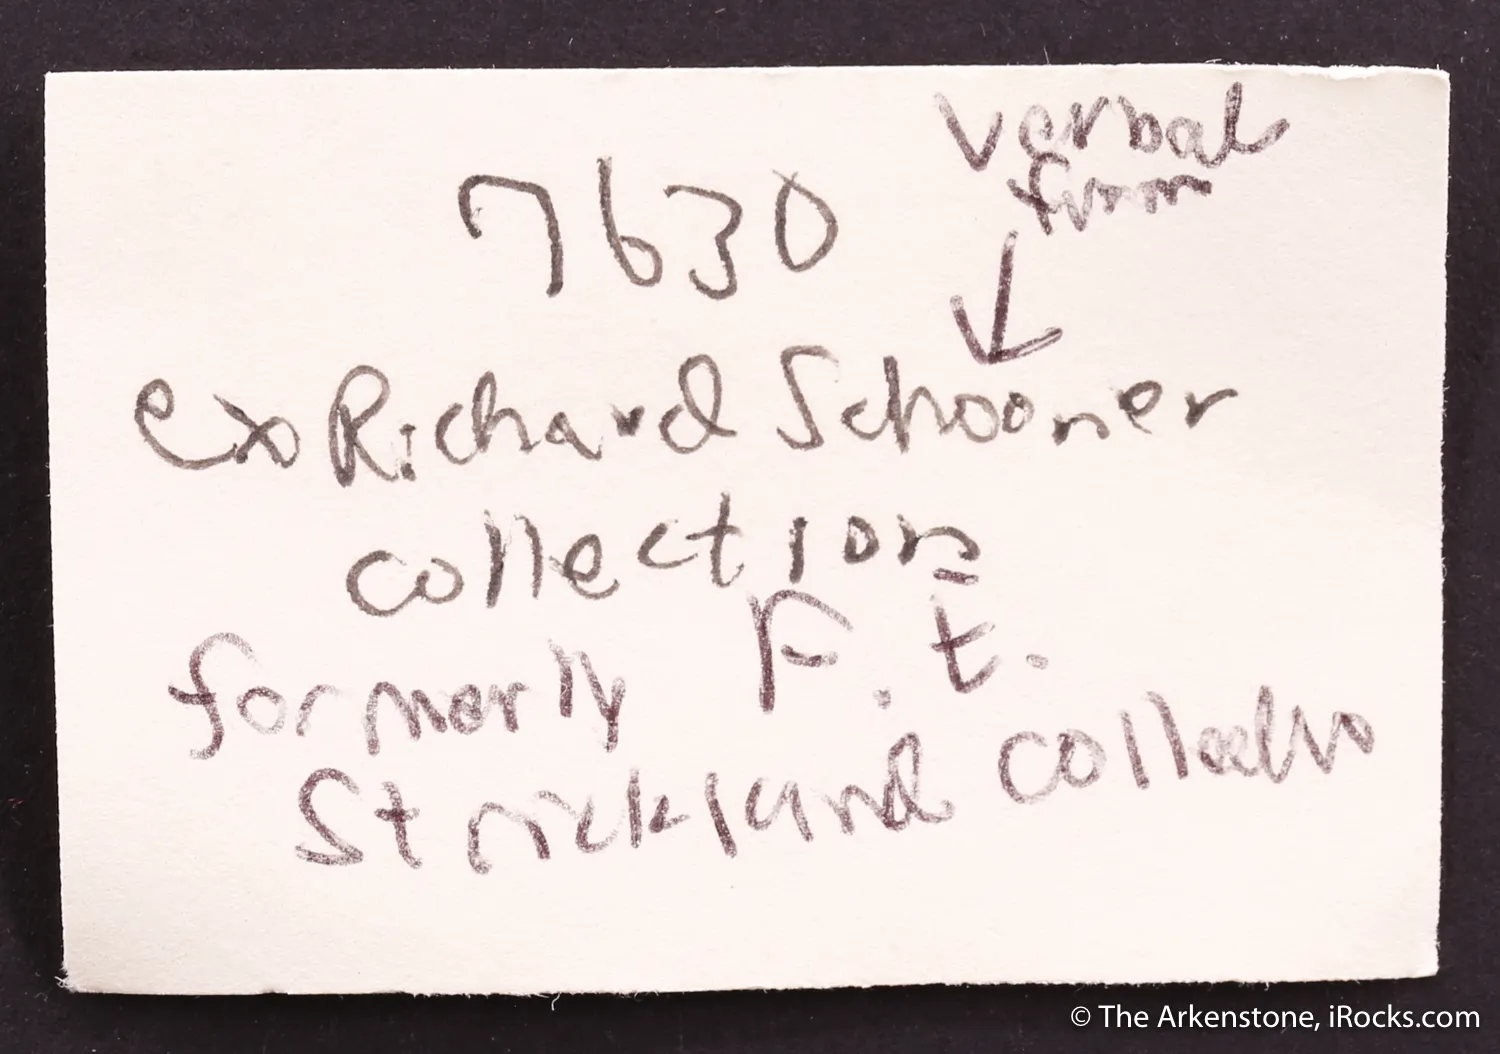 verbal
from
7630
ex Richard Schooner
collection
formerly F. E.
Strickland collectio
© The Arkenstone, iRocks.com